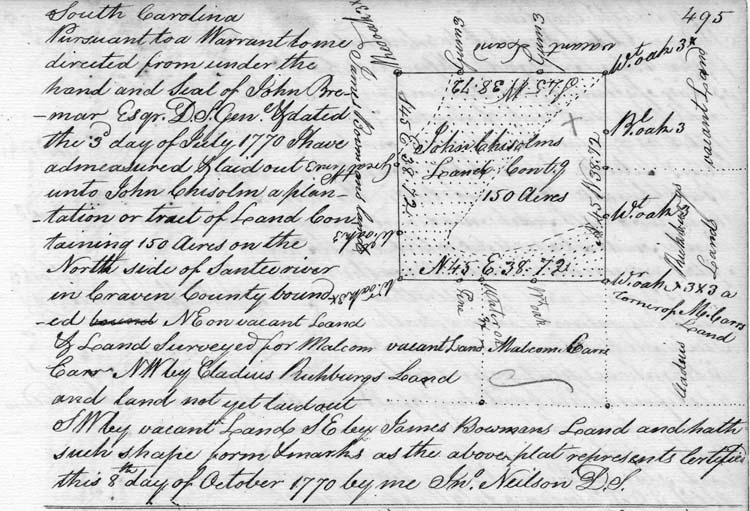 495
South Carolina
Pursuant to a Warrant to me
directed from under the
hand and Seal of John Bre-
-mar Esqr. D. S. Gen.l & dated
the 3d day of July 1770 I have
admeasured & laid out
unto John Chisolm a plan-
-tation or tract of Land Con-
-taining 150 Acres on the
North side of Santee river
in Craven County bound
-ed bound NE on vacant Land
& Land Surveyed for Malcom
Carr NW by Cladius Richburgs Land
and land not yet laid out
SW by vacant Land SE by James Bowmans Land and hath
such shape form & marks as the above plat represents Certified
this 8th day of October 1770 by me Jno. Neilson D. S.
W. oak 3x
James Bowmans land
Gum
vacant Land
S 45 W 38.72
Wt. oak 3x
Bl. oak 3
vacant Land
John Chisolms
Land Cont.g
150 Acres
N 45 E 38.72
N 45 W 38.72
Wt. oak
Richburgs
Land
N 45 E. 38.72
W oak 3x
Pine
Water oak
W oak
Wt. oak x 3x3 a
Corner of M. Carrs
Land
vacant Land
Malcom Carr